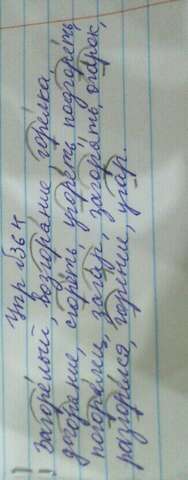 Упр 136 н
загорелый, возгорание, горелка
догорание, сгорел, угореть, подгореть,
погорели, загар, загорять, огарок,
разгорелся, горение, угар.